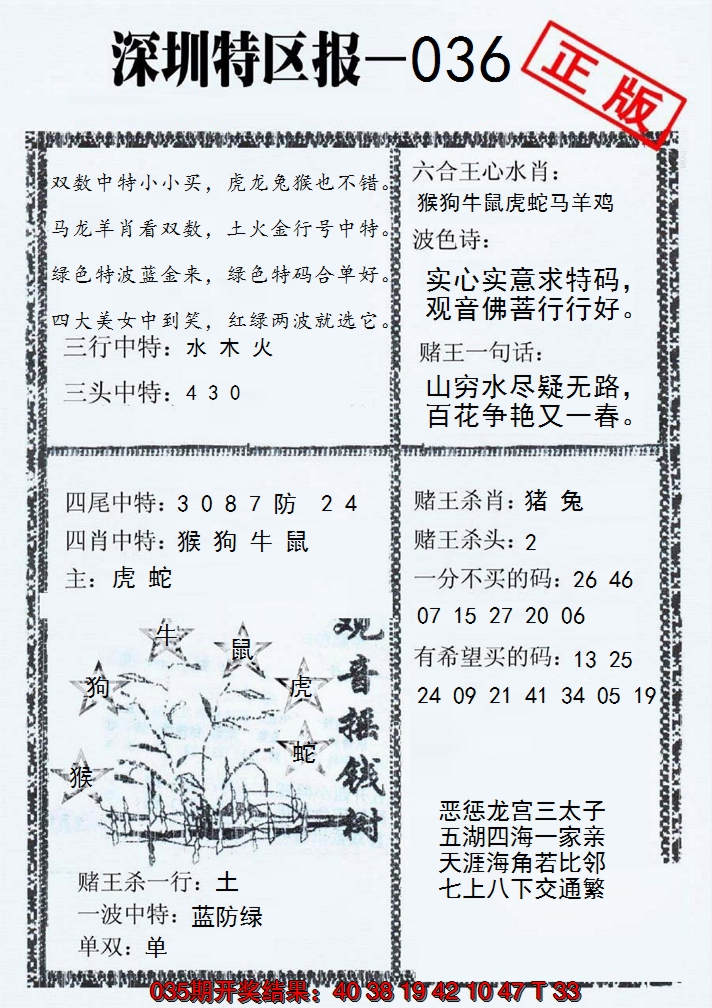 深圳特区报—036
正版
双数中特小小买，虎龙兔猴也不错。
马龙羊肖看双数，土火金行号中特。
绿色特波蓝金来，绿色特码合单好。
四大美女中到笑，红绿两波就选它。
三行中特：水 木 火
三头中特：4 3 0
六合王心水肖：
猴狗牛鼠虎蛇马羊鸡
波色诗：
实心实意求特码，
观音佛善行行好。
赌王一句话：
山穷水尽疑无路，
百花争艳又一春。
四尾中特：3 0 8 7 防 2 4
四肖中特：猴 狗 牛 鼠
主：虎 蛇
牛
鼠
狗
虎
蛇
猴
观音摇钱树
赌王杀一行：土
一波中特：蓝防绿
单双：单
赌王杀肖：猪 兔
赌王杀头：2
一分不买的码：26 46
07 15 27 20 06
有希望买的码：13 25
24 09 21 41 34 05 19
恶惩龙宫三太子
五湖四海一家亲
天涯海角若比邻
七上八下交通繁
035期开奖结果：40 38 19 42 10 47 T 33